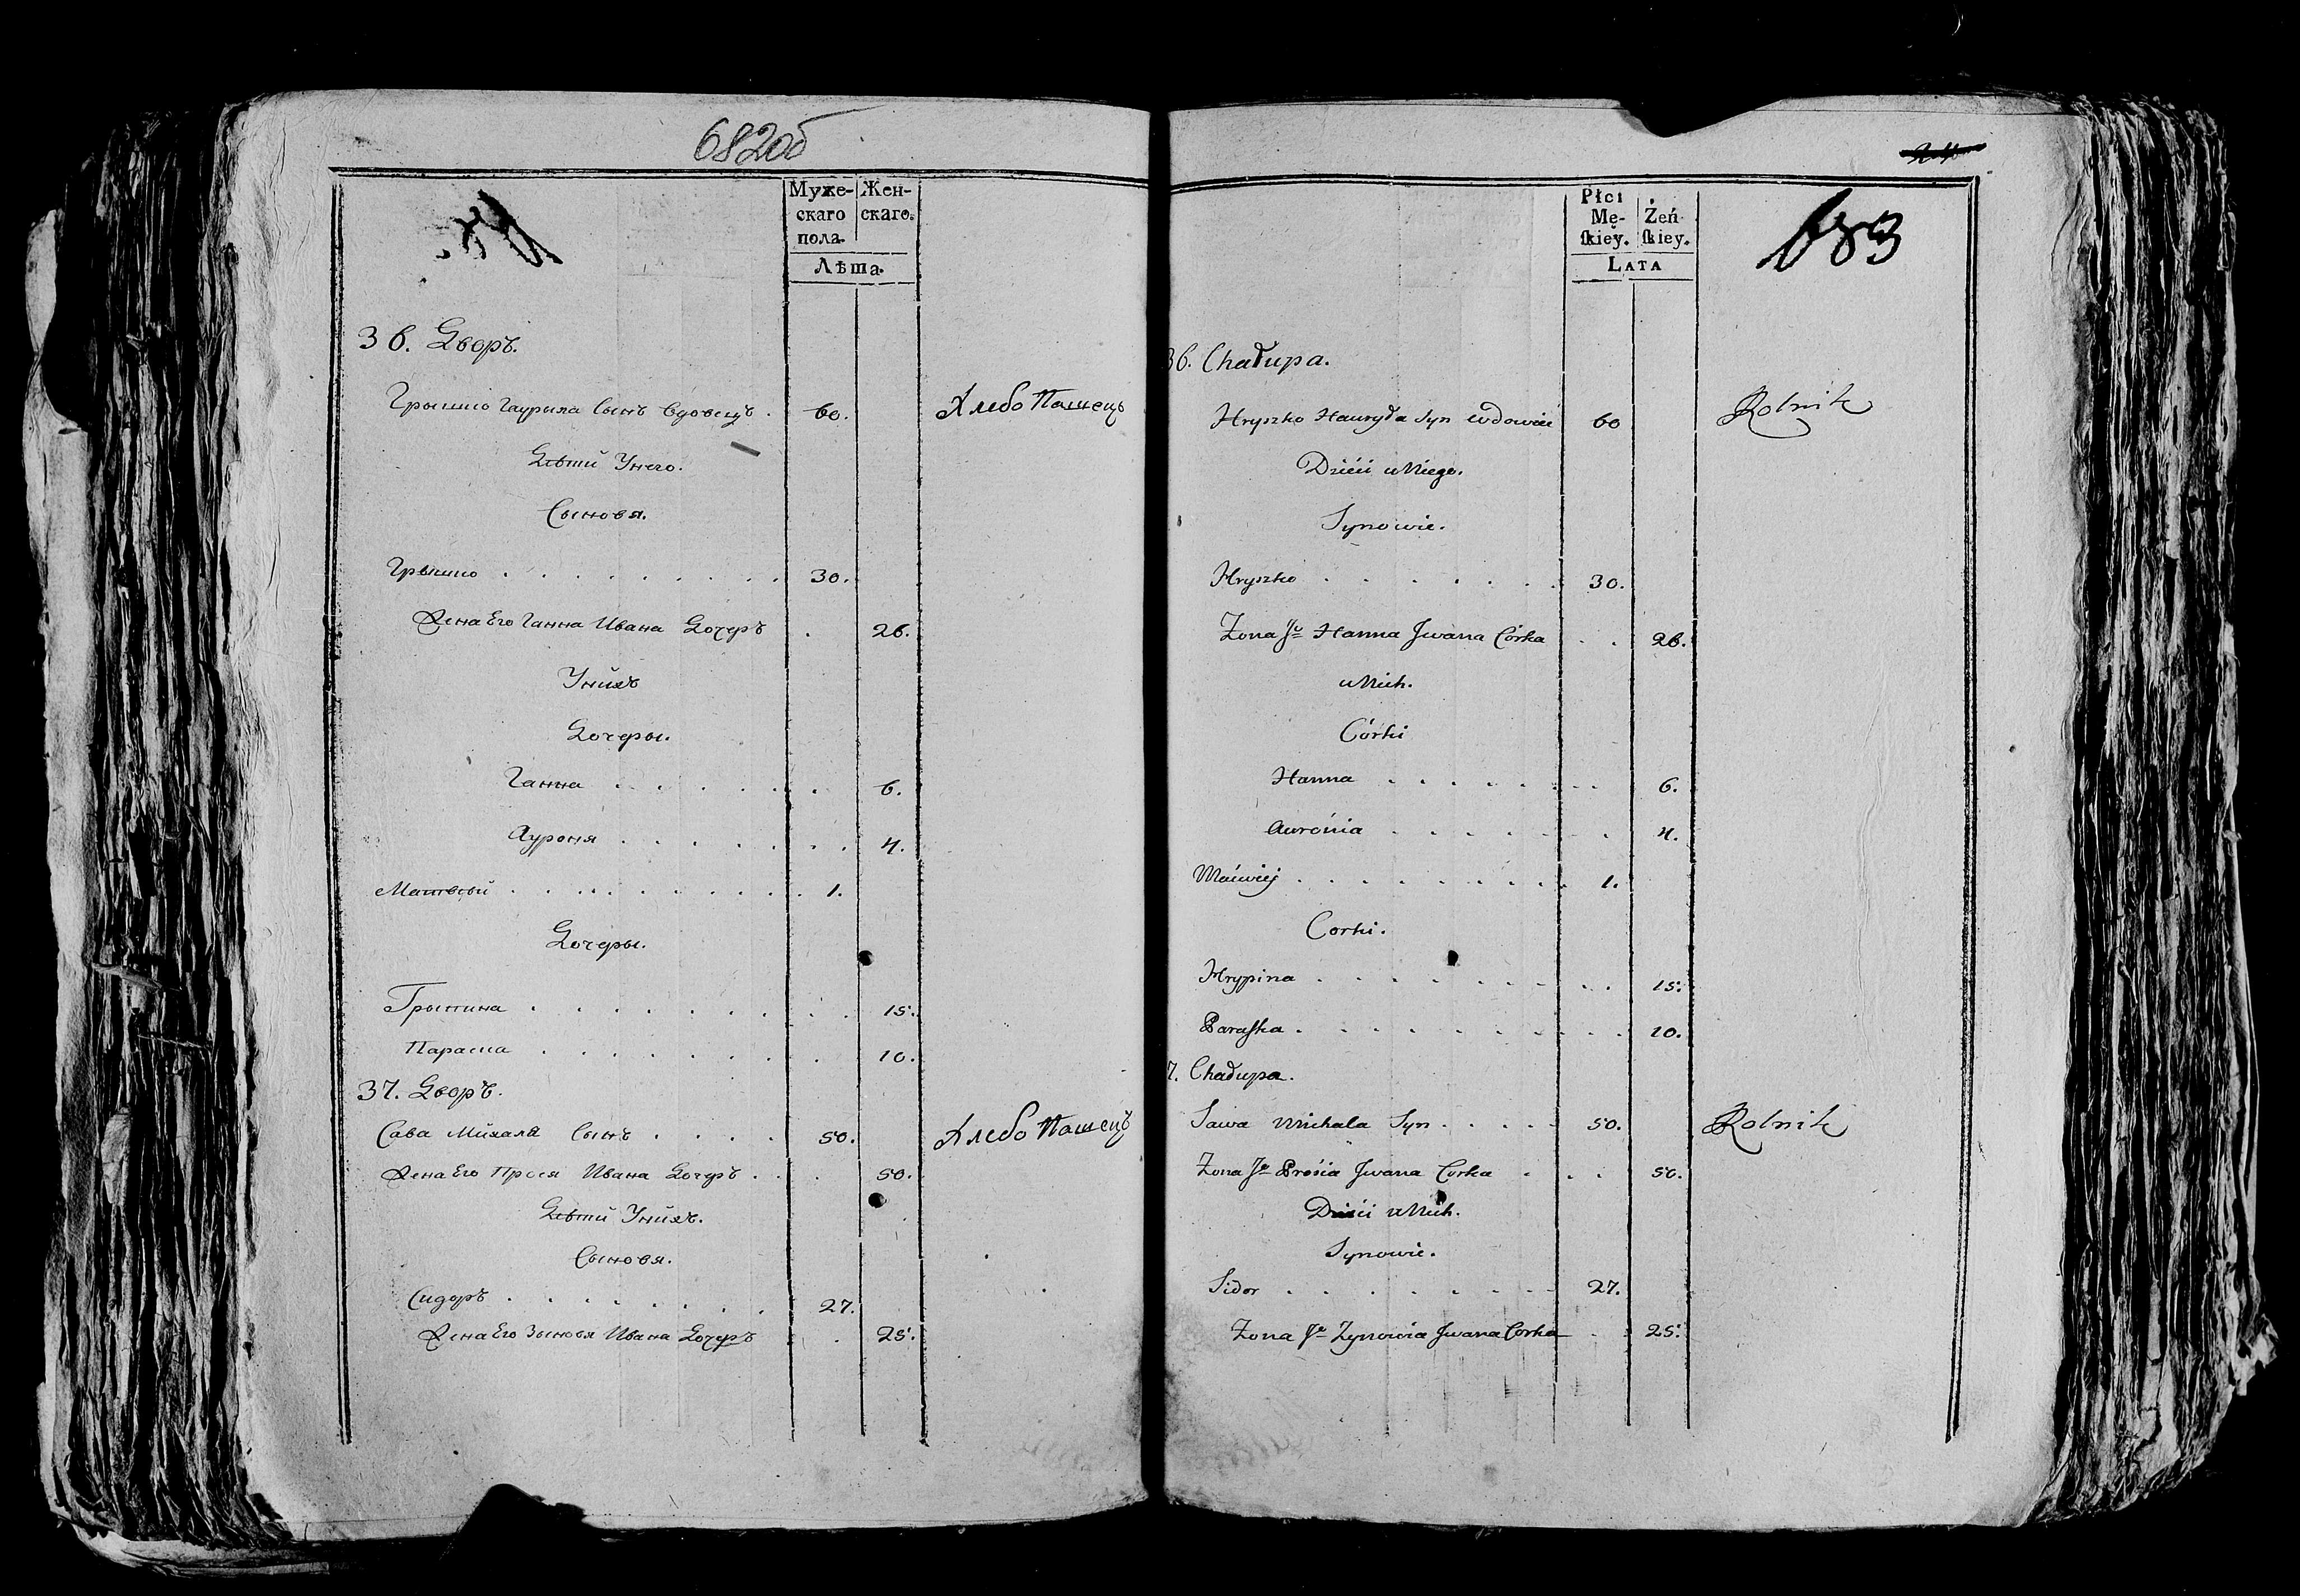 682об
Муже-
скаго
пола.
Жен-
скаго.
Лѣта.
36. Дворъ.
Грышко Гаурыла Сынъ Вдовецъ . 60. Хлебо Пашецъ
Дѣтй Унего.
Сыновя.
Грышко . . . . . . . . 30.
Жена Его Ганна Ивана Дочеръ . 26.
Унйхъ
Дочеры.
Ганна . . . . . . 6.
Ауроня . . . . . . . 4.
Матвѣй . . . . . . . . . 1.
Дочеры.
Грыпина . . . . . . . . 15.
Параска . . . . . . . . 10.
37. Дворъ.
Сава Мйхала Сынъ . . . . 50. Хлебо Пашецъ
Жена Его Прося Ивана Дочеръ . . . 50.
Дѣтй Унйхъ.
Сыновя.
Сидоръ . . . . . . . 27.
Жена Его Зыновя Ивана Дочеръ . 25.
683
Płci
Mę-
skiey.
Żeń
skiey.
LATA
36. Chałupa.
Hryszko Hauryła Syn Wdowiec 60 Rolnik
Dzieci u Niego.
Synowie.
Hryszko . . . . . . . 30.
Zona Jo Hanna Jwana Córka . . 26.
u Nich.
Córki
Hanna . . . . . . . . 6.
Aurónia . . . . . . 4.
Maciwiej . . . . . . . . . 1.
Corki.
Hrypina . . . . . . . . . 15.
Paraska . . . . . . . . . . 10.
7. Chałupa.
Sawa Michała Syn . . . . 50. Rolnik
Zona Jo Prosia Jwana Corka . . . 50.
Dzieci u Nich.
Synowie.
Sidor . . . . . . . 27.
Zona Jo Zynowia Jwana Corka . . 25.